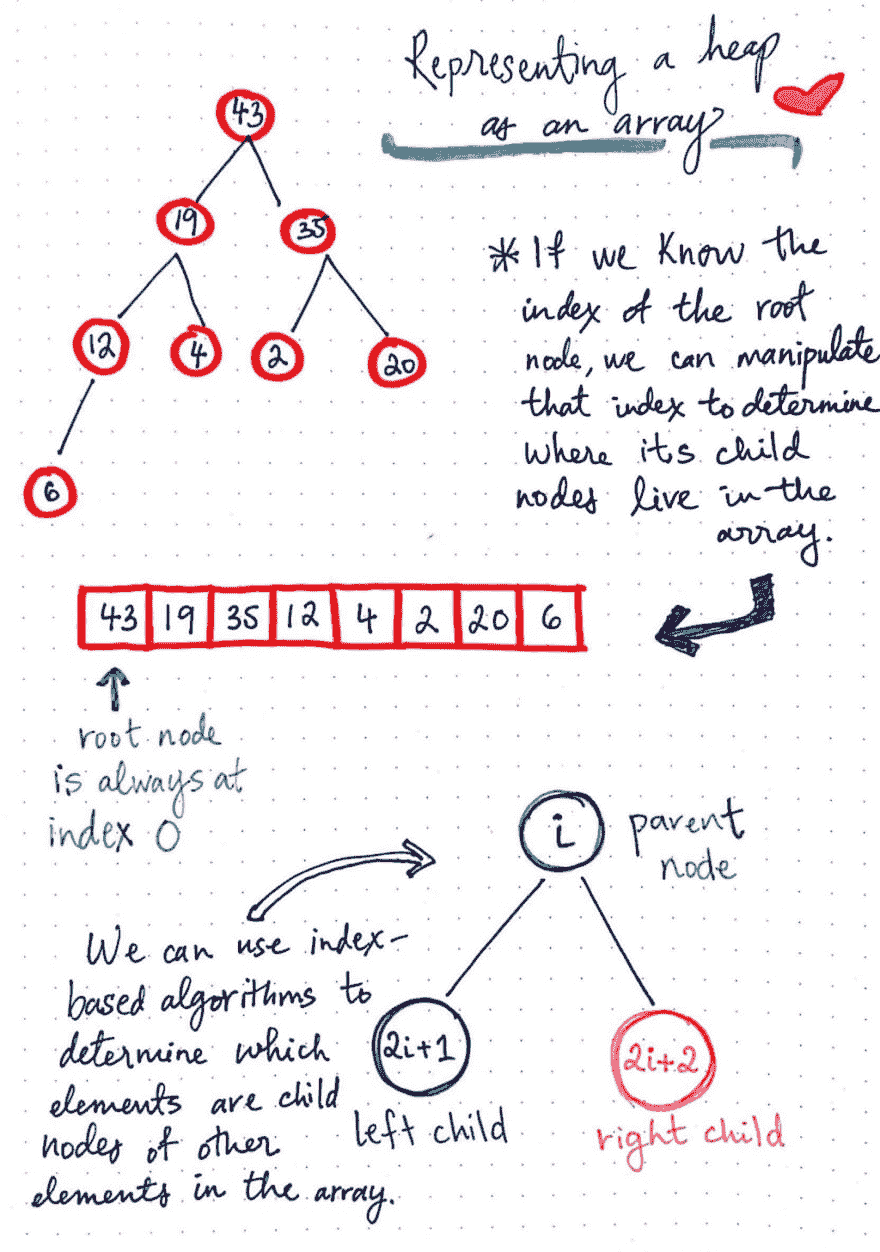 Representing a heap
as an array
43
19
35
12
4
2
20
6
* If we know the
index of the root
node, we can manipulate
that index to determine
where its child
nodes live in the
array.
43 19 35 12 4 2 20 6
root node
is always at
index 0
i
parent
node
We can use index-
based algorithms to
determine which
elements are child
nodes of other
elements in the array.
2i+1
left child
2i+2
right child